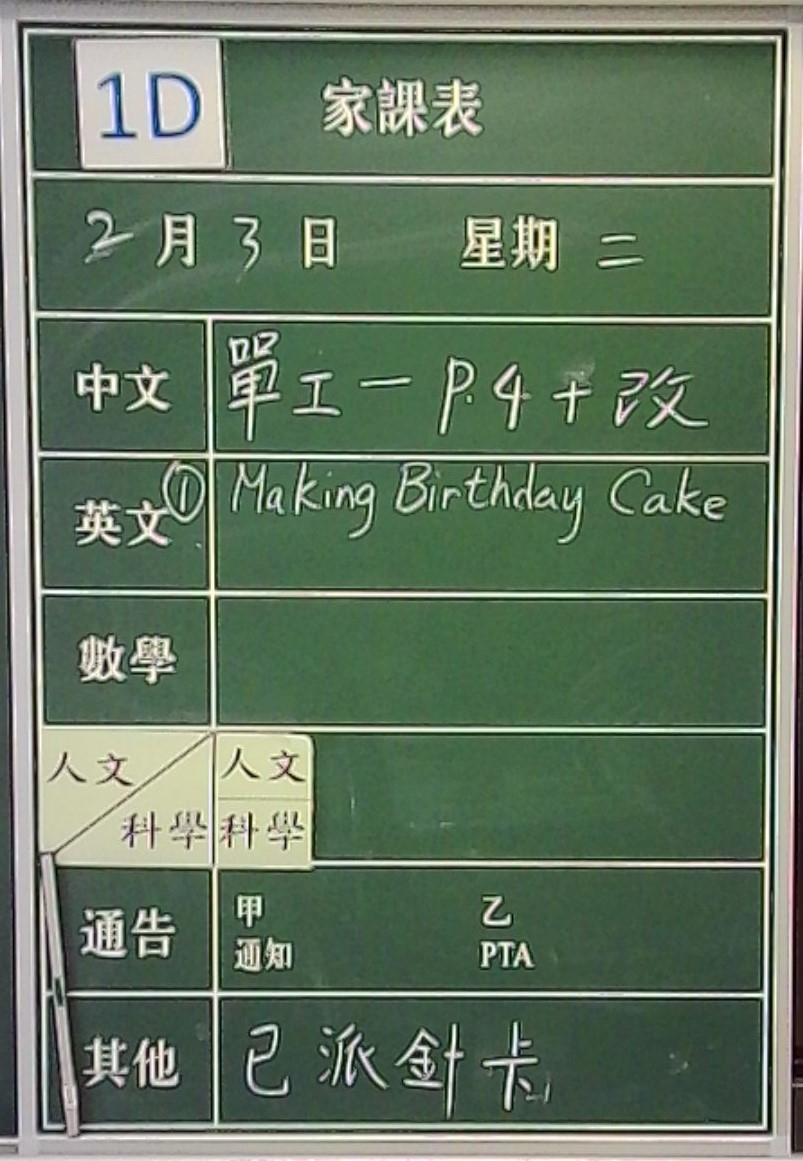 1D 家課表
2月3日 星期二
中文 單工一 P.4 + 改
英文 ① Making Birthday Cake
數學
人文 人文
科學 科學
通告 甲 乙
通知 PTA
其他 已派針卡